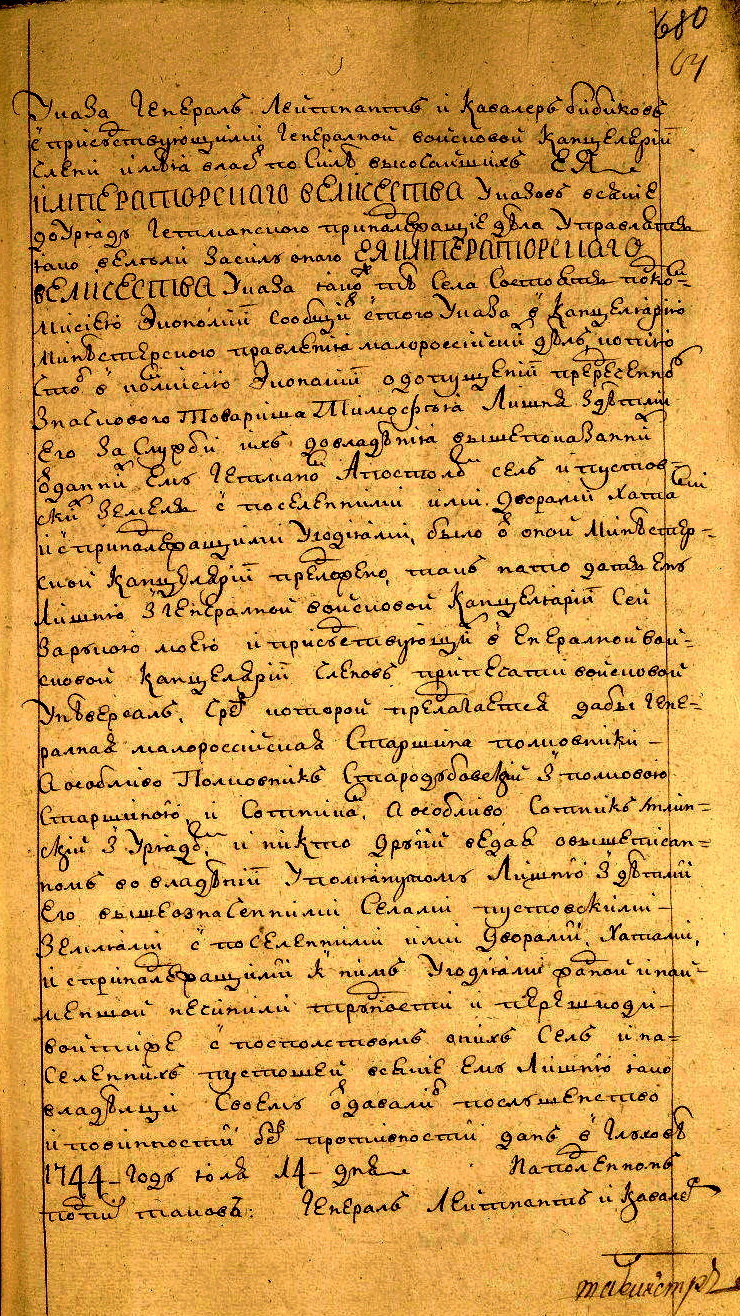 680
64
Указа Генералъ Лейтнантъ и Кавалеръ бибиковъ
с присутствующими Генералной войсковой Канцеляріи
члени имѣя власт по Силѣ высочайшихъ ЕЯ
ИМПЕРАТОРСКАГО ВЕЛИЧЕСТВА Указовъ всякіе
до Уряду Гетманского приналежащіе дѣла Управлятъ
яко велѣли Засилъ оного ЕЯ ИМПЕРАТОРСКАГО
ВЕЛИЧЕСТВА Указа тако
мисіею Экономіи Сообщ с того Указа в Канцелярію
Министерского правленія малороссійскихъ дѣлъ
в комисію Экономіи о допущеніи преречен
Значкового Товариша Тимофѣя Лишня Здѣтми
Его За Служби ихъ до владѣнія вышепоказанни
данни Емъ Гетмано Апостоло селъ и пустов-
ски Земель с поселенними ими дворами хата
и с приналежащими Угодіями, было оной Министер-
ской Канцеляріи предложено, такъ на то дать Емъ
Лишню З Генералной войсковой Канцеляріи Сей
За рукою моею и присутствующи в Енералной вой-
сковой Канцеляріи Членовъ припечати войсковой
Унѣверсалъ, Чре которой предлагается дабы Гене-
ралная малороссійская Старшина полковники
А особливо Полковникъ Стародубовскій З полковою
Старшиною и Сотники, А особливо Сотникъ Млин-
скій З Уряд, и нихто другій ведая о вышеписан-
номъ во владѣніи Упомянутомъ Лишню З дѣтми
Его вышеозначенними Селами пустовскими
Землями с поселенними ими Дворами, Хатами,
и с приналежащими к нимъ Угодіями жадной и най-
меншой не чинили трудности и перешкоди
войти же с посполствомъ онихъ Селъ и на-
Селеннихъ пустошей всякіе Емъ Лишню яко
владѣлци Своемъ одавали послушенство
и повинности бе противности данъ в Глухов
1744 Годъ юля 14 дня На подленномъ
по таковъ: Генералъ Лейтнантъ и Кавале